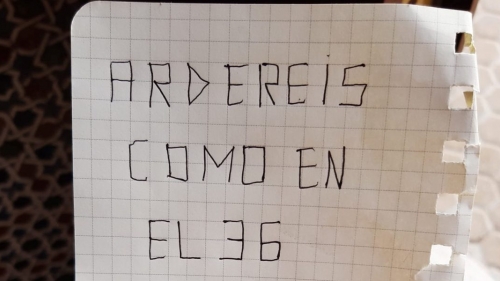 ARDEREiS
COMO EN
EL 36